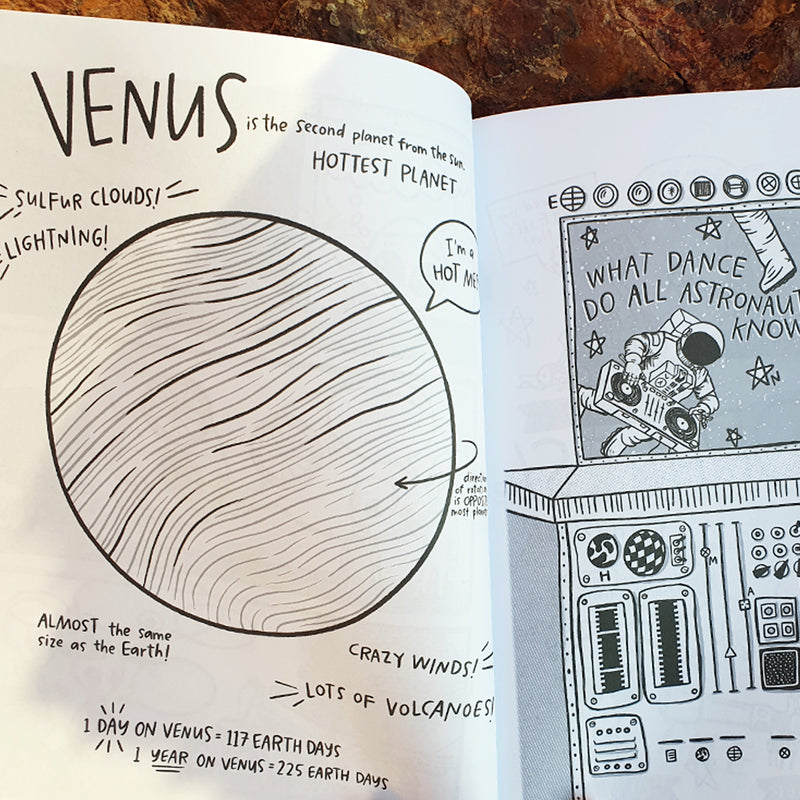 VENUS is the second planet from the sun.
HOTTEST PLANET
SULFUR CLOUDS!
LIGHTNING!
I'm a
HOT
direction
of
is
most
ALMOST the same
size as the Earth!
CRAZY WINDS!
LOTS OF VOLCANOES!
1 DAY ON VENUS = 117 EARTH DAYS
1 YEAR ON VENUS = 225 EARTH DAYS
E
WHAT DANCE
DO ALL ASTRONAUT
KNOW
N
H
M
A